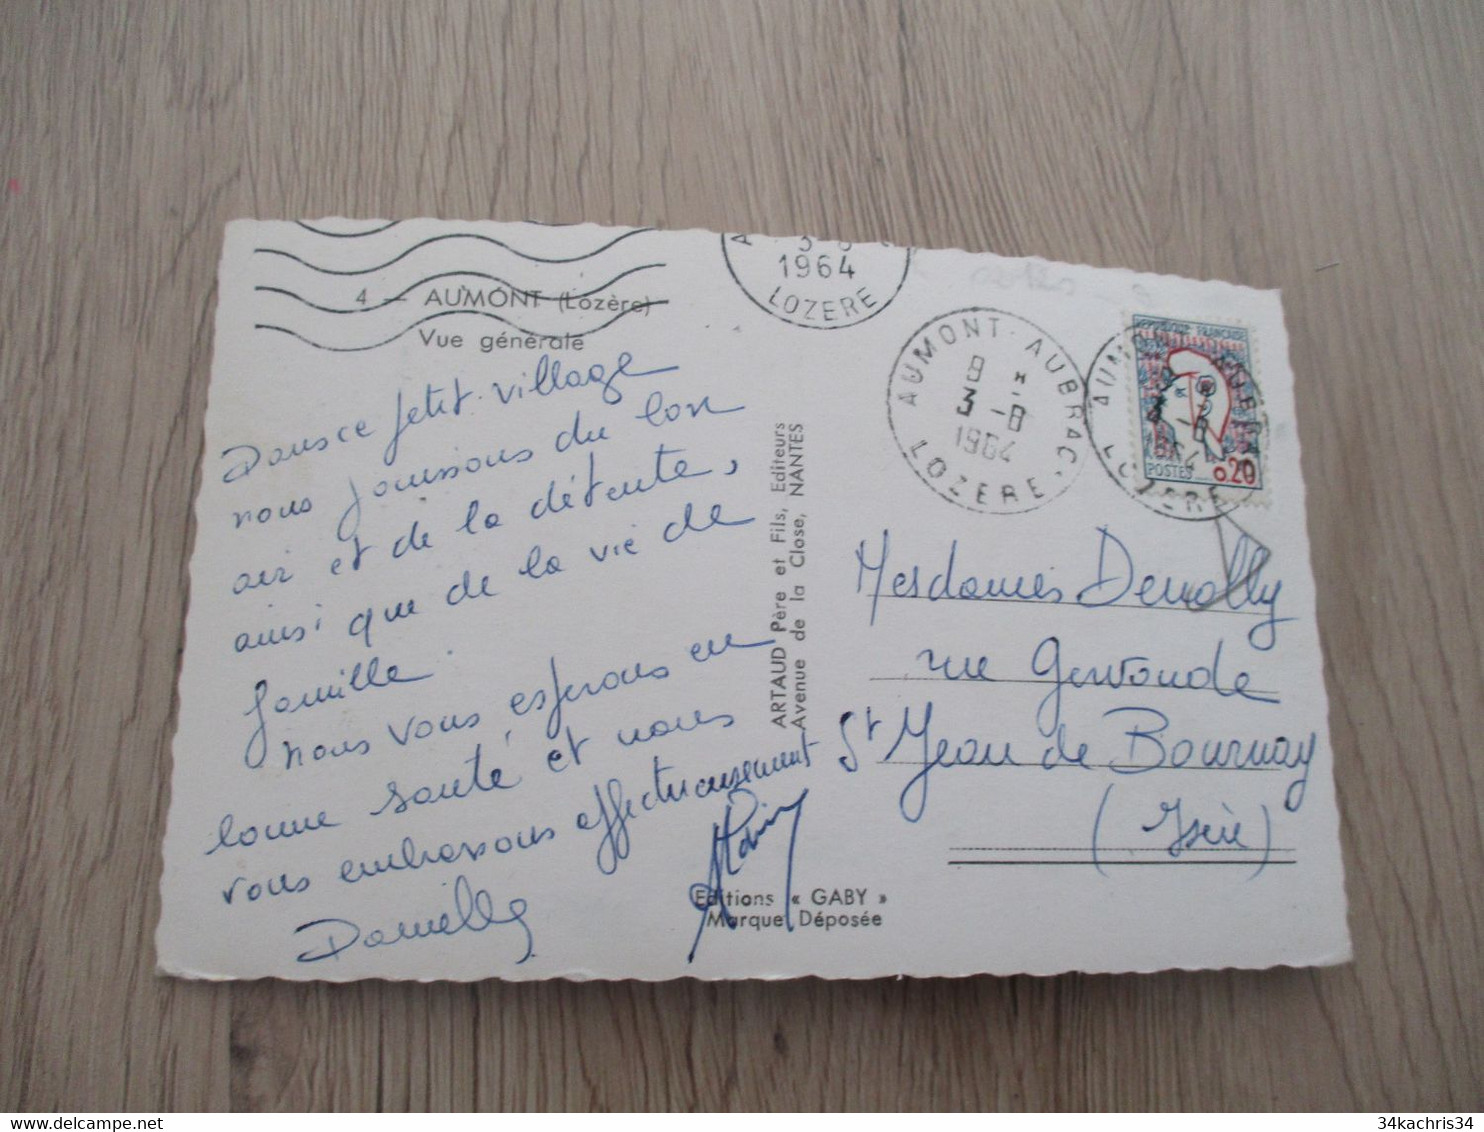 4 — AUMONT (Lozère)
Vue générale
Dans ce petit village
nous jouissons du bon
air et de la détente,
ainsi que de la vie de
famille.
nous vous espérons en
bonne santé, et nous
vous embrassons affectueusement
Danielle
ARTAUD Père et Fils, Editeurs
Avenue de la Close, NANTES
Editions « GABY »
Marque Déposée
1964
LOZERE
AUMONT-AUBRAC
8 H
3 -8
1964
LOZERE
REPUBLIQUE FRANÇAISE
POSTES 0,20
LOZERE
Mesdames
rue
St Jean de Bournay
(Isère)
34kachris34